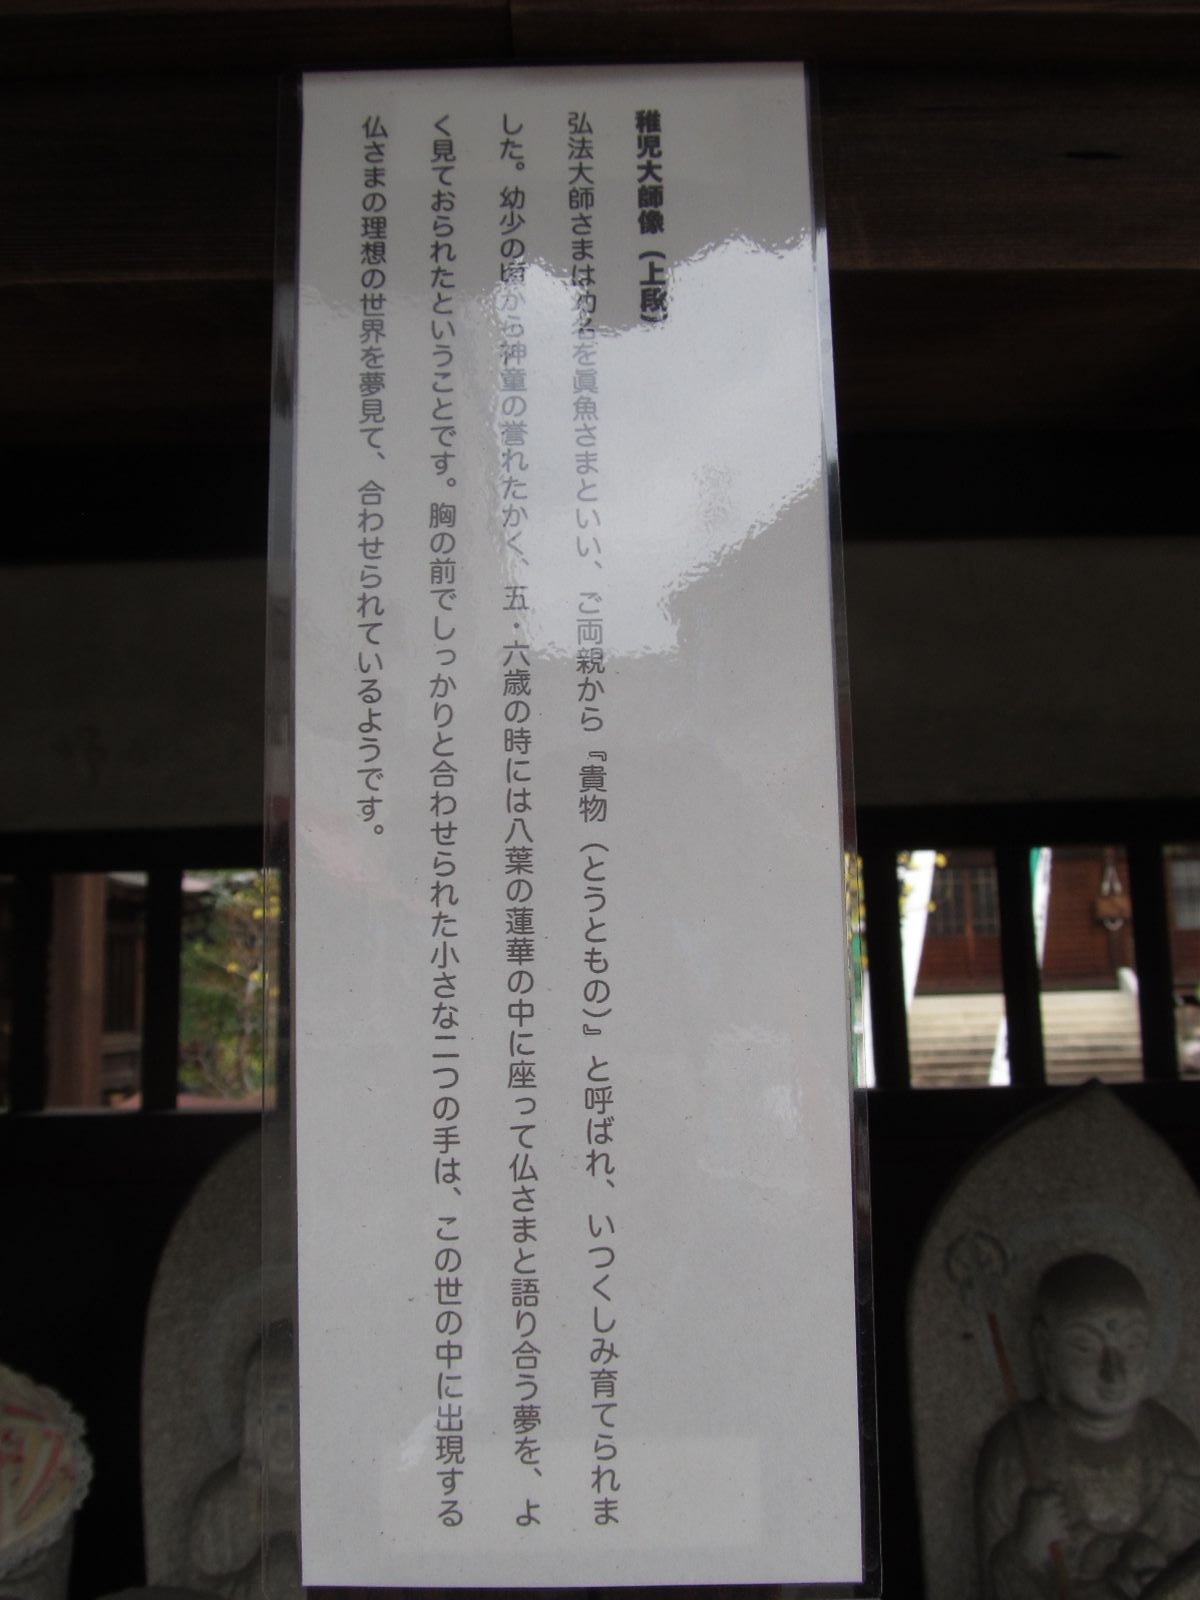 稚児大師像（上段）
弘法大師さまは幼名を眞魚さまといい、ご両親から『貴物（とうともの）』と呼ばれ、いつくしみ育てられま
した。幼少の頃から神童の誉れたかく、五・六歳の時には八葉の蓮華の中に座って仏さまと語り合う夢を、よ
く見ておられたということです。胸の前でしっかりと合わせられた小さな二つの手は、この世の中に出現する
仏さまの理想の世界を夢見て、合わせられているようです。